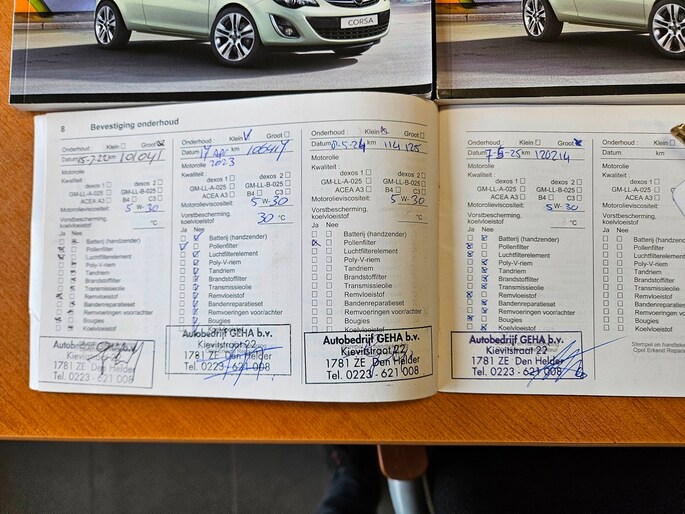 CORSA
8 Bevestiging onderhoud
Onderhoud: Klein Groot
Datum 15-7-22 km 101041
Motorolie
Kwaliteit
dexos 1 dexos 2
GM-LL-A-025 GM-LL-B-025
ACEA A3 B4 C3
Motorolieviscositeit: 5 W-30
Vorstbescherming,
koelvloeistof °C
Ja Nee
Batterij (handzender)
Pollenfilter
Luchtfilterelement
Poly-V-riem
Tandriem
Brandstoffilter
Transmissieolie
Remvloeistof
Bandenreparatieset
Remvoeringen voor/achter
Bougies
Koelvloeistof
Autobedrijf GEHA b.v.
1781 ZE Den Helder
Tel. 0223 - 621 008
Onderhoud: Klein Groot
Datum 17 Apr 2023 km 106417
Motorolie
Kwaliteit:
dexos 1 dexos 2
GM-LL-A-025 GM-LL-B-025
ACEA A3 B4 C3
Motorolieviscositeit: 5 W-30
Vorstbescherming,
koelvloeistof 30 °C
Ja Nee
Batterij (handzender)
Pollenfilter
Luchtfilterelement
Poly-V-riem
Tandriem
Brandstoffilter
Transmissieolie
Remvloeistof
Bandenreparatieset
Remvoeringen voor/achter
Bougies
Koelvloeistof
Autobedrijf GEHA b.v.
Kievitstraat 22
1781 ZE Den Helder
Tel. 0223 - 621 008
Onderhoud: Klein Groot
Datum 8-5-24 km 114125
Motorolie
Kwaliteit:
dexos 1 dexos 2
GM-LL-A-025 GM-LL-B-025
ACEA A3 B4 C3
Motorolieviscositeit: 5 W-30
Vorstbescherming,
koelvloeistof °C
Ja Nee
Batterij (handzender)
Pollenfilter
Luchtfilterelement
Poly-V-riem
Tandriem
Brandstoffilter
Transmissieolie
Remvloeistof
Bandenreparatieset
Remvoeringen voor/achter
Bougies
Koelvloeistof
Autobedrijf GEHA b.v.
Kievitstraat 22
1781 ZE Den Helder
Tel. 0223 - 621 008
Onderhoud: Klein Groot
Datum 7-5-25 km 120214
Motorolie
Kwaliteit:
dexos 1 dexos 2
GM-LL-A-025 GM-LL-B-025
ACEA A3 B4 C3
Motorolieviscositeit: 5 W-30
Vorstbescherming,
koelvloeistof °C
Ja Nee
Batterij (handzender)
Pollenfilter
Luchtfilterelement
Poly-V-riem
Tandriem
Brandstoffilter
Transmissieolie
Remvloeistof
Bandenreparatieset
Remvoeringen voor/achter
Bougies
Koelvloeistof
Autobedrijf GEHA b.v.
Kievitstraat 22
1781 ZE Den Helder
Tel. 0223 - 621 008
Onderhoud: Klein
Datum
Motorolie
Kwaliteit:
dexos 1
GM-LL-A-025
ACEA A3
Motorolieviscositeit:
Vorstbescherming,
koelvloeistof
Ja Nee
Batterij (handzender)
Pollenfilter
Luchtfilterelement
Poly-V-riem
Tandriem
Brandstoffilter
Transmissieolie
Remvloeistof
Bougies
Koelvloeistof
Stempel en
Opel Erkend